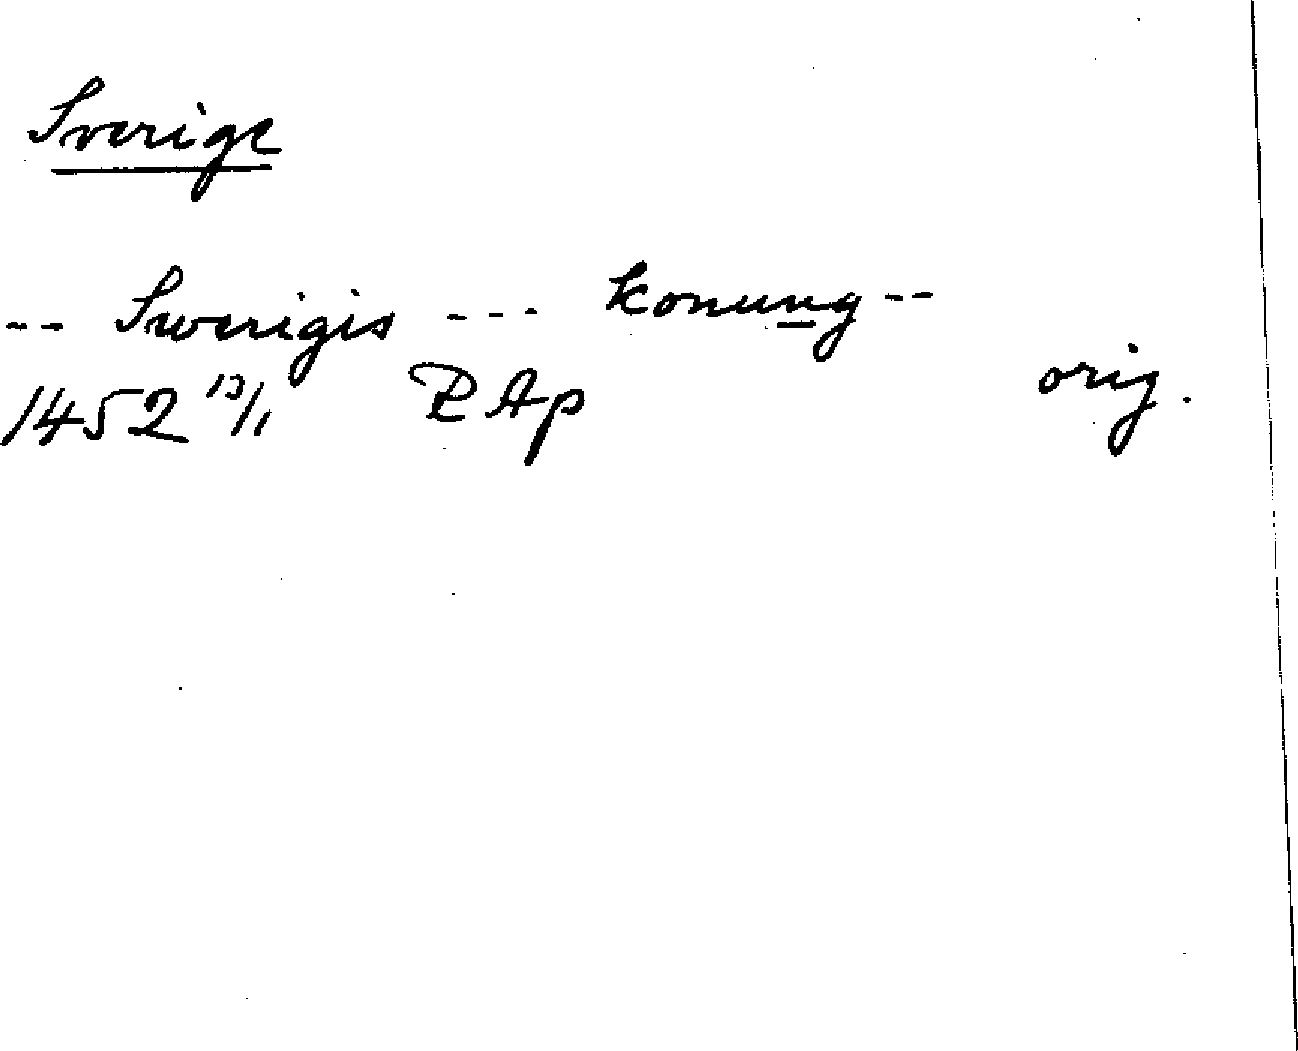 Sverige
-- Swerigis --- konung --
1452 13/1 RAp orig.